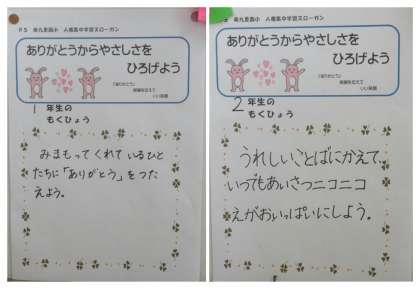 人権集中学習スローガン
ありがとうからやさしさを
ひろげよう
「ありがとう」
1年生の
もくひょう
みまもってくれているひと
たちに「ありがとう」をつた
えよう。
人権集中学習スローガン
ありがとうからやさしさを
ひろげよう
「ありがとう」
2年生の
もくひょう
うれしいことばにかえて、
いつでもあいさつニコニコ
えがおいっぱいにしよう。